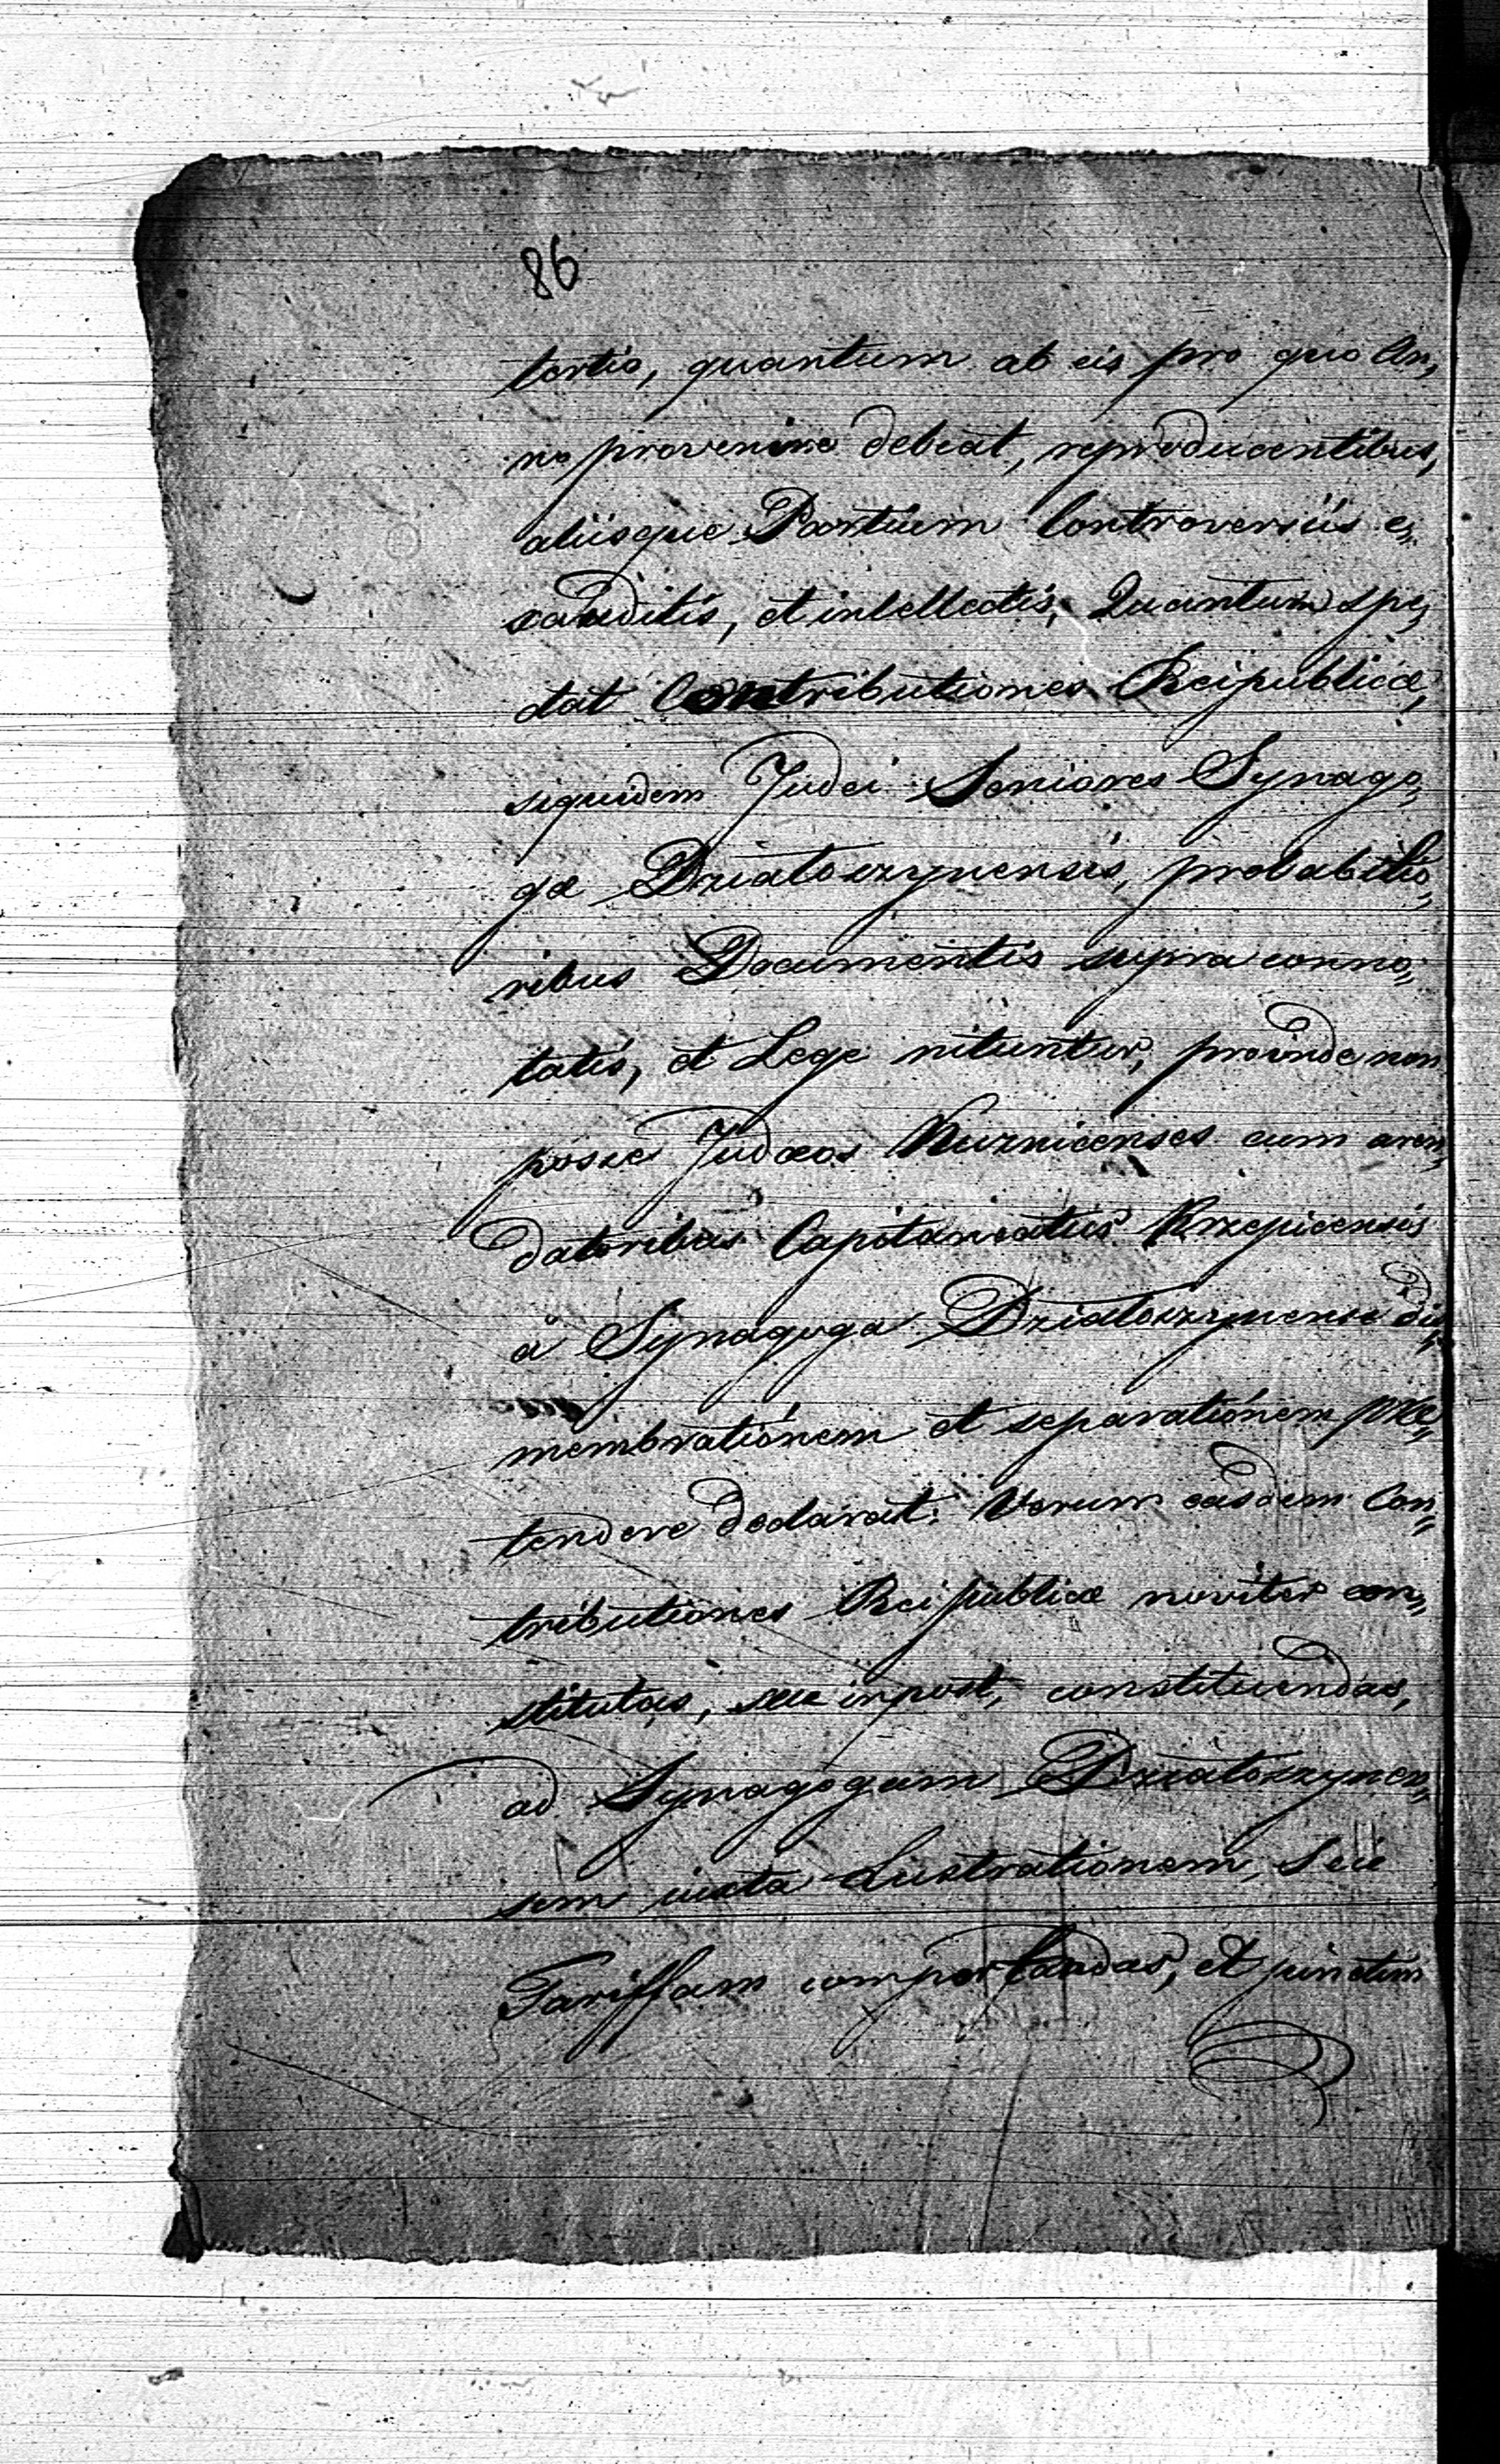 86
tertis, quantum ab eis pro quo An„
no provenire debeat, reproducentibus,
aliisque Partium Controversiis e„
xauditis, et intellectis, Quantum spe„
ctat Contributiones Reipublicæ,
siquidem Judei Seniores Synago„
gæ Działoszynensis, probabilio„
ribus Documentis supra conno„
tatis, et Lege nituntur, proinde non
posse Judæos Kuznicenses cum aren„
datoribus Capitaneatus Krzepicensis
à Synagoga Działoszynensi dis„
membrationem et separationem præ„
tendere declarat. Verum easdem Con„
tributiones Reipublicæ noviter con„
stitutas, seu inpost, constituendas,
ad Synagogam Działoszynen„
sem iuxta Lustrationem, seu
Tariffam comportandas, et punctim